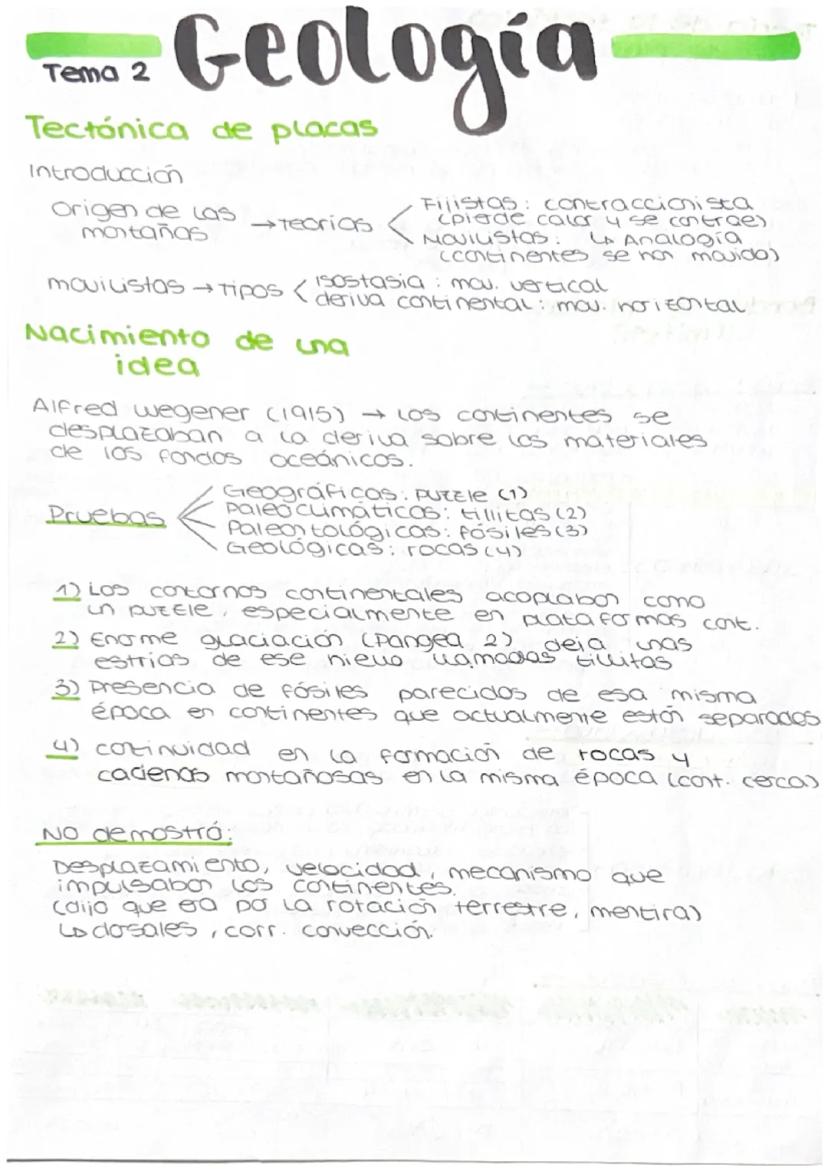 Geología
Tema 2
Tectónica de placas
Introducción
Origen de las montañas → Teorías < Fijistas: contraccionista (pierde calor y se contrae)
Movilistas: ↳ Analogía (continentes se han movido)
movilistas → Tipos < isostasia: mov. vertical
deriva continental: mov. horizontal
Nacimiento de una
idea
Alfred Wegener (1915) → los continentes se
desplazaban a la deriva sobre los materiales
de los fondos oceánicos.
Pruebas < Geográficas: puzzle (1)
Paleoclimáticos: tillitas (2)
Paleontológicas: fósiles (3)
Geológicas: rocas (4)
1) Los contornos continentales acoplaban como
un puzzle, especialmente en plataformas cont.
2) Enorme glaciación (Pangea 2) deja unas
estrías de ese hielo llamadas tillitas
3) Presencia de fósiles parecidos de esa misma
época en continentes que actualmente están separados
4) continuidad en la formación de rocas y
cadenas montañosas en la misma época (cont. cerca)
No demostró:
Desplazamiento, velocidad, mecanismo que
impulsaban los continentes.
(dijo que era por la rotación terrestre, mentira)
↳ dosales, corr. convección.